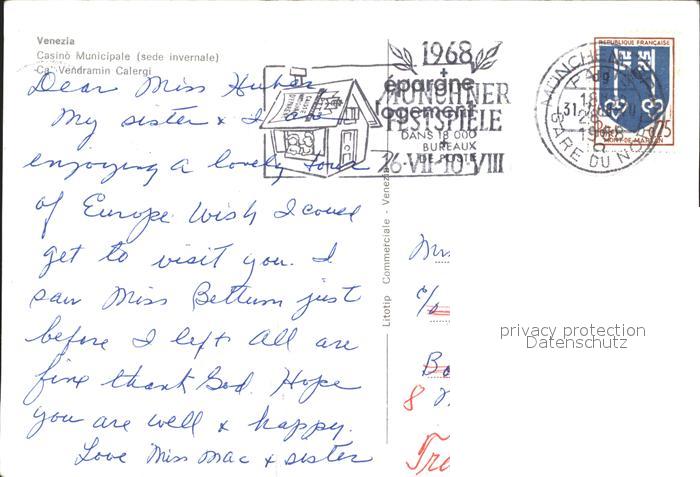 Venezia
Casinò Municipale (sede invernale)
Ca' Vendramin Calergi
Dear Miss Huber
My sister & I are
enjoying a lovely tour
of Europe. Wish I could
get to visit you. I
saw Miss Bettum just
before I left. All are
fine thank God. Hope
you are well & happy.
Love Miss Mac & sister
1968
épargne
logement
MÜNCHNER
FESTSPIELE
DANS 18 000
BUREAUX
DE POSTE
26·VII-10·VIII
MÜNCHEN
PARIS
GARE DU NORD
1968
REPUBLIQUE FRANÇAISE
0,25
MONT-DE-MARSAN
Litotip Commerciale - Venezia
c/o
8
privacy protection
Datenschutz